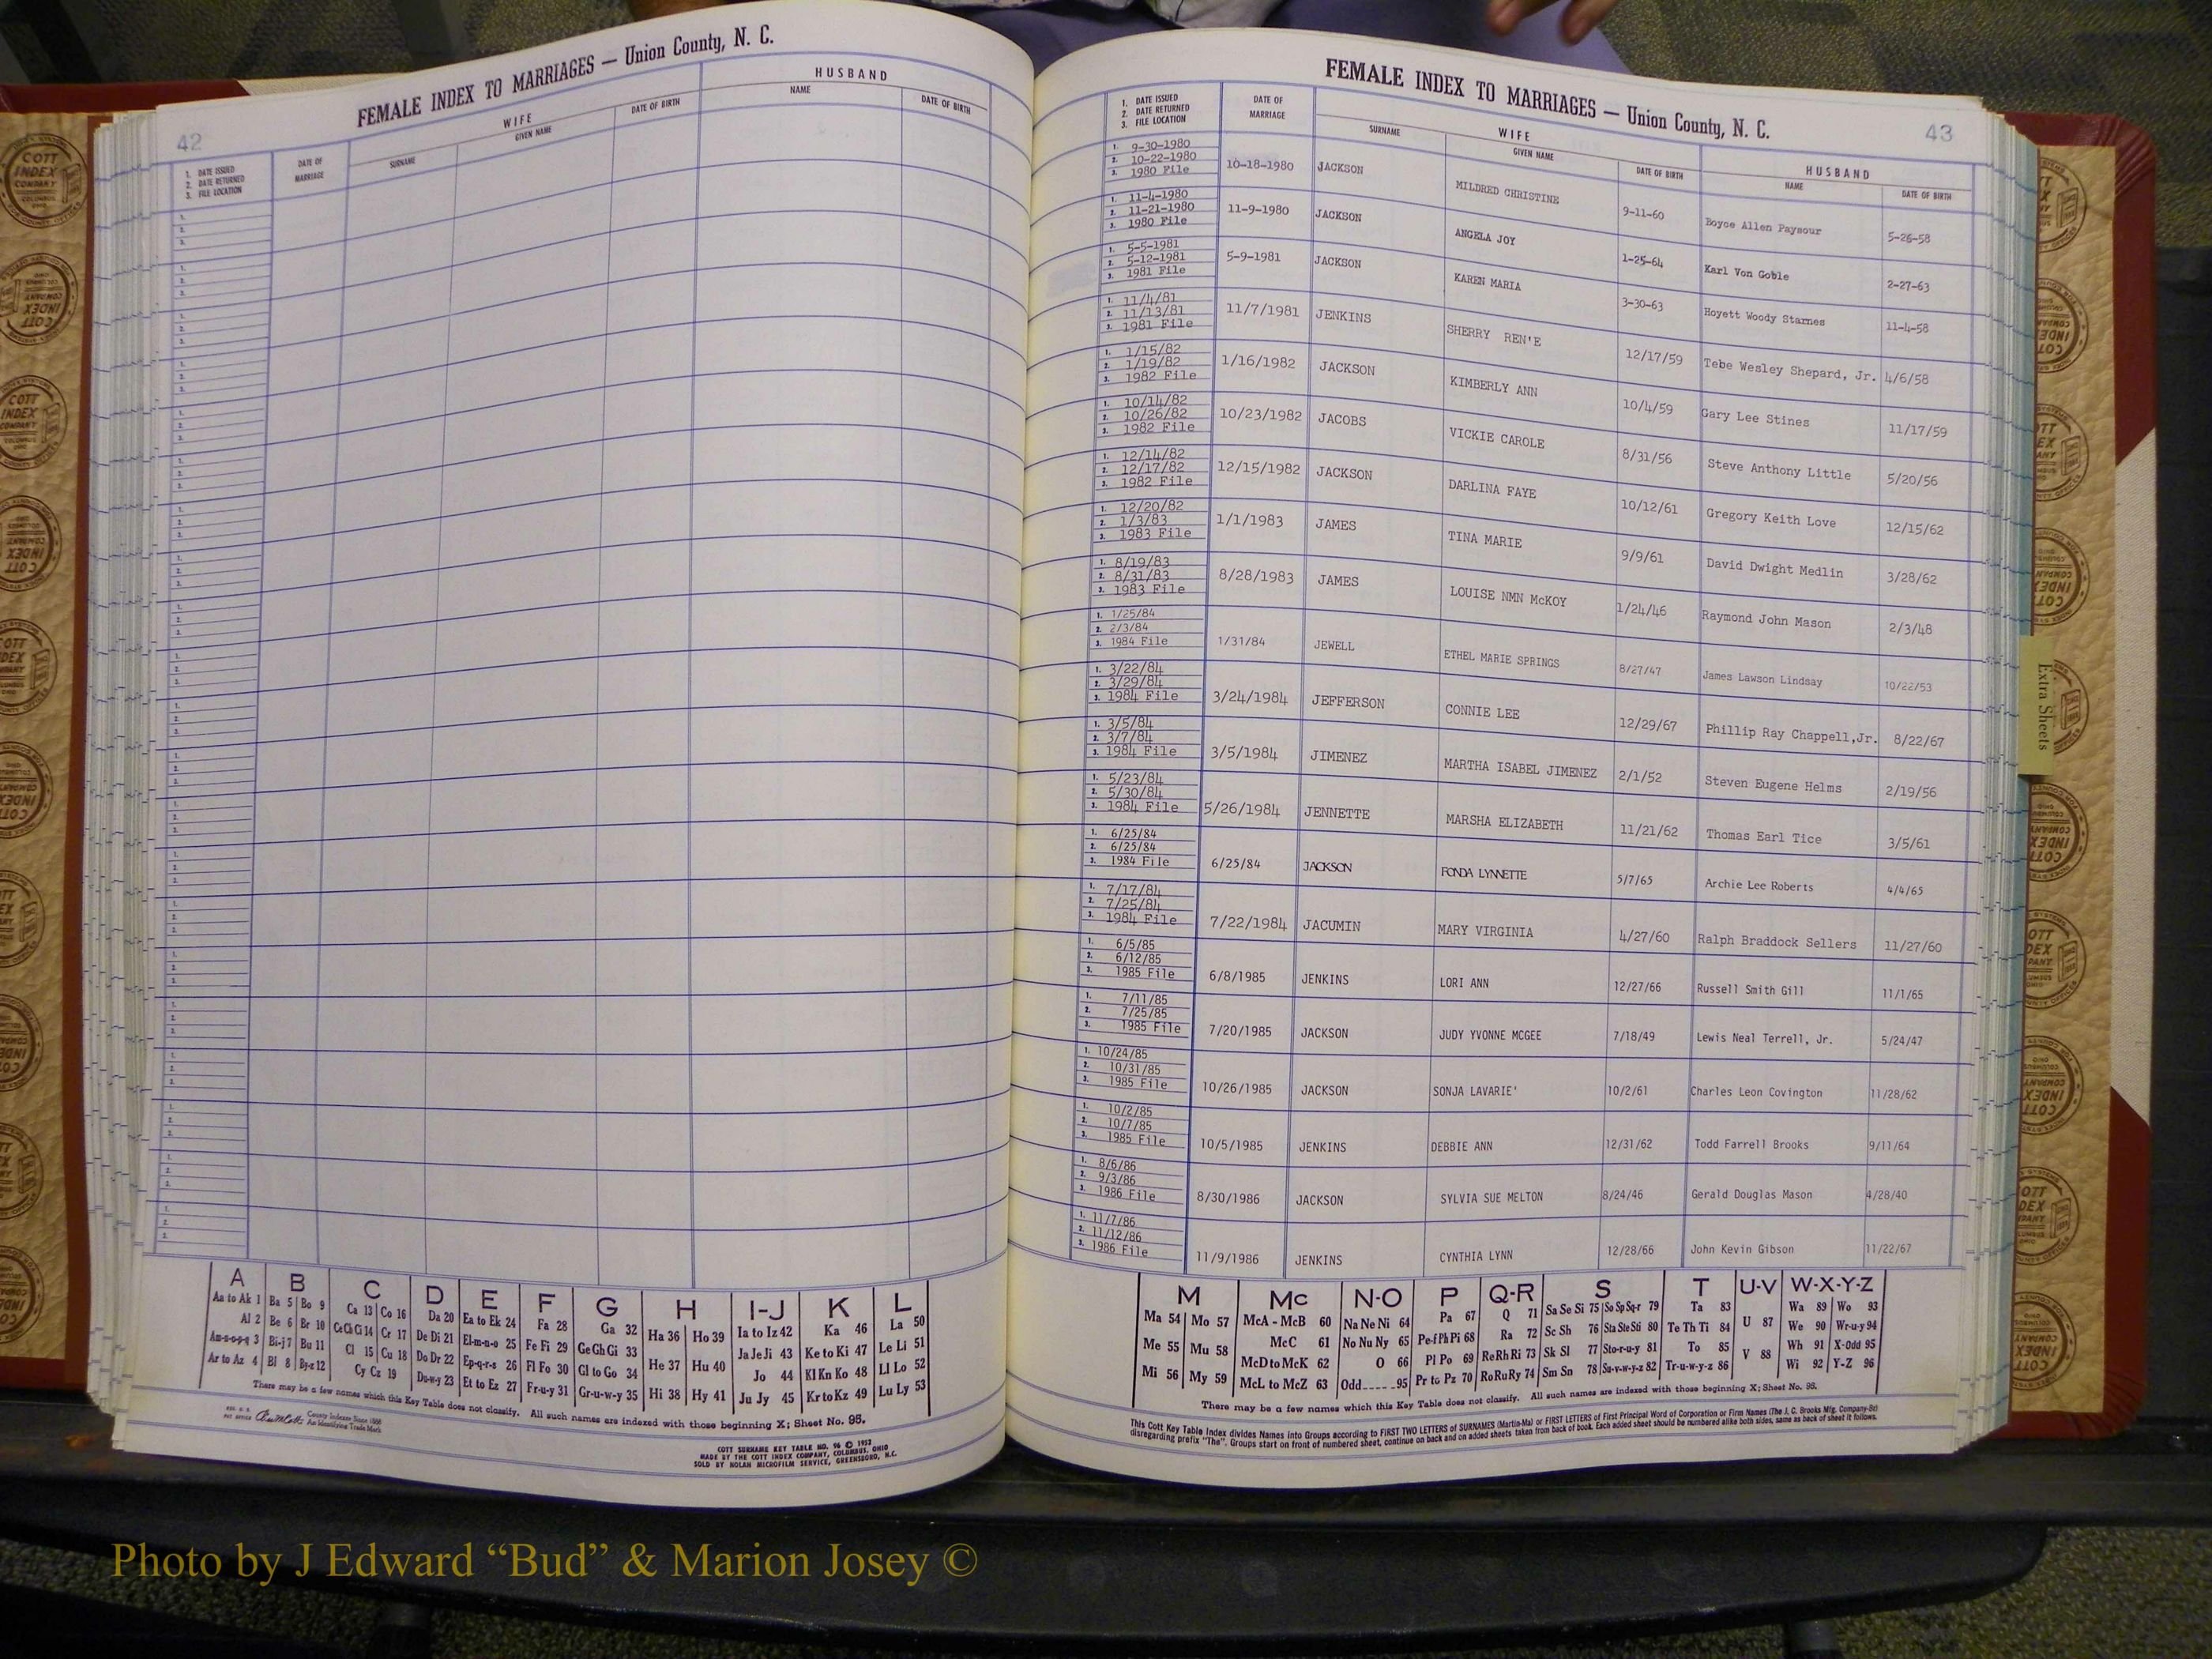 42
FEMALE INDEX TO MARRIAGES — Union County, N. C.
1. DATE ISSUED
2. DATE RETURNED
3. FILE LOCATION
DATE OF MARRIAGE
WIFE
SURNAME GIVEN NAME DATE OF BIRTH
HUSBAND
NAME DATE OF BIRTH
A B C D E F G H I-J K L
Aa to Ak 1 Ba 5 Bo 9 Ca 13 Co 16 Da 20 Ea to Ek 24 Fa 28 Ga 32 Ha 36 Ho 39 Ia to Iz 42 Ka 46 La 50
Al 2 Be 6 Br 10 Ce Ch Ci 14 Cr 17 De Di 21 El-m-n-o 25 Fe Fi 29 Ge Gh Gi 33 He 37 Hu 40 Ja Je Ji 43 Ke to Ki 47 Le Li 51
Am-n-o-p-q 3 Bi-j 7 Bu 11 Cl 15 Cu 18 Do Dr 22 Ep-q-r-s 26 Fl Fo 30 Gl to Go 34 Hi 38 Hy 41 Jo 44 Kl Kn Ko 48 Ll Lo 52
Ar to Az 4 Bl 8 By-z 12 Cy Cz 19 Du-w-y 23 Et to Ez 27 Fr-u-y 31 Gr-u-w-y 35 Ju Jy 45 Kr to Kz 49 Lu Ly 53
There may be a few names which this Key Table does not classify. All such names are indexed with those beginning X; Sheet No. 95.
County Indexes Since 1888
An Identifying Trade Mark
COTT SURNAME KEY TABLE NO. 96 © 1952
MADE BY THE COTT INDEX COMPANY, COLUMBUS, OHIO
SOLD BY NOLAN MICROFILM SERVICE, GREENSBORO, N.C.
FEMALE INDEX TO MARRIAGES — Union County, N. C.
43
1. DATE ISSUED
2. DATE RETURNED
3. FILE LOCATION
DATE OF MARRIAGE
WIFE
SURNAME GIVEN NAME DATE OF BIRTH
HUSBAND
NAME DATE OF BIRTH
1. 9-30-1980
2. 10-22-1980
3. 1980 File
10-18-1980 JACKSON MILDRED CHRISTINE 9-11-60 Boyce Allen Paysour 5-26-58
1. 11-4-1980
2. 11-21-1980
3. 1980 File
11-9-1980 JACKSON ANGELA JOY 1-25-64 Karl Von Goble 2-27-63
1. 5-5-1981
2. 5-12-1981
3. 1981 File
5-9-1981 JACKSON KAREN MARIA 3-30-63 Hoyett Woody Starnes 11-4-58
1. 11/4/81
2. 11/13/81
3. 1981 File
11/7/1981 JENKINS SHERRY REN'E 12/17/59 Tebe Wesley Shepard, Jr. 4/6/58
1. 1/15/82
2. 1/19/82
3. 1982 File
1/16/1982 JACKSON KIMBERLY ANN 10/4/59 Gary Lee Stines 11/17/59
1. 10/14/82
2. 10/26/82
3. 1982 File
10/23/1982 JACOBS VICKIE CAROLE 8/31/56 Steve Anthony Little 5/20/56
1. 12/14/82
2. 12/17/82
3. 1982 File
12/15/1982 JACKSON DARLINA FAYE 10/12/61 Gregory Keith Love 12/15/62
1. 12/20/82
2. 1/3/83
3. 1983 File
1/1/1983 JAMES TINA MARIE 9/9/61 David Dwight Medlin 3/28/62
1. 8/19/83
2. 8/31/83
3. 1983 File
8/28/1983 JAMES LOUISE NMN McKOY 1/24/46 Raymond John Mason 2/3/48
1. 1/25/84
2. 2/3/84
3. 1984 File
1/31/84 JEWELL ETHEL MARIE SPRINGS 8/27/47 James Lawson Lindsay 10/22/53
1. 3/22/84
2. 3/29/84
3. 1984 File
3/24/1984 JEFFERSON CONNIE LEE 12/29/67 Phillip Ray Chappell,Jr. 8/22/67
1. 3/5/84
2. 3/7/84
3. 1984 File
3/5/1984 JIMENEZ MARTHA ISABEL JIMENEZ 2/1/52 Steven Eugene Helms 2/19/56
1. 5/23/84
2. 5/30/84
3. 1984 File
5/26/1984 JENNETTE MARSHA ELIZABETH 11/21/62 Thomas Earl Tice 3/5/61
1. 6/25/84
2. 6/25/84
3. 1984 File
6/25/84 JACKSON FONDA LYNNETTE 5/7/65 Archie Lee Roberts 4/4/65
1. 7/17/84
2. 7/25/84
3. 1984 File
7/22/1984 JACUMIN MARY VIRGINIA 4/27/60 Ralph Braddock Sellers 11/27/60
1. 6/5/85
2. 6/12/85
3. 1985 File
6/8/1985 JENKINS LORI ANN 12/27/66 Russell Smith Gill 11/1/65
1. 7/11/85
2. 7/25/85
3. 1985 File
7/20/1985 JACKSON JUDY YVONNE MCGEE 7/18/49 Lewis Neal Terrell, Jr. 5/24/47
1. 10/24/85
2. 10/31/85
3. 1985 File
10/26/1985 JACKSON SONJA LAVARIE' 10/2/61 Charles Leon Covington 11/28/62
1. 10/2/85
2. 10/7/85
3. 1985 File
10/5/1985 JENKINS DEBBIE ANN 12/31/62 Todd Farrell Brooks 9/11/64
1. 8/6/86
2. 9/3/86
3. 1986 File
8/30/1986 JACKSON SYLVIA SUE MELTON 8/24/46 Gerald Douglas Mason 4/28/40
1. 11/7/86
2. 11/12/86
3. 1986 File
11/9/1986 JENKINS CYNTHIA LYNN 12/28/66 John Kevin Gibson 11/22/67
M Mc N-O P Q-R S T U-V W-X-Y-Z
Ma 54 Mo 57 McA - McB 60 Na Ne Ni 64 Pa 67 Q 71 Sa Se Si 75 So Sp Sq-r 79 Ta 83 U 87 Wa 89 Wo 93
Me 55 Mu 58 McC 61 No Nu Ny 65 Pe-f Ph Pi 68 Ra 72 Sc Sh 76 Sta Ste Sti 80 Te Th Ti 84 V 88 We 90 Wr-u-y 94
Mi 56 My 59 McD to McK 62 O 66 Pl Po 69 Re Rh Ri 73 Sk Sl 77 Sto-r-u-y 81 To 85 Wh 91 X-Odd 95
McL to McZ 63 Odd 95 Pr to Pz 70 Ro Ru Ry 74 Sm Sn 78 Su-v-w-y-z 82 Tr-u-w-y-z 86 Wi 92 Y-Z 96
There may be a few names which this Key Table does not classify. All such names are indexed with those beginning X; Sheet No. 95.
This Cott Key Table Index divides Names into Groups according to FIRST TWO LETTERS of SURNAMES (Martin-Ma) or FIRST LETTERS of First Principal Word of Corporation or Firm Names (The J. C. Brooks Mfg. Company-Br)
disregarding prefix "The". Groups start on front of numbered sheet, continue on back and on added sheets taken from back of book. Each added sheet should be numbered alike both sides, same as back of sheet it follows.
Extra Sheets
COTT INDEX COMPANY
Photo by J Edward “Bud” & Marion Josey ©